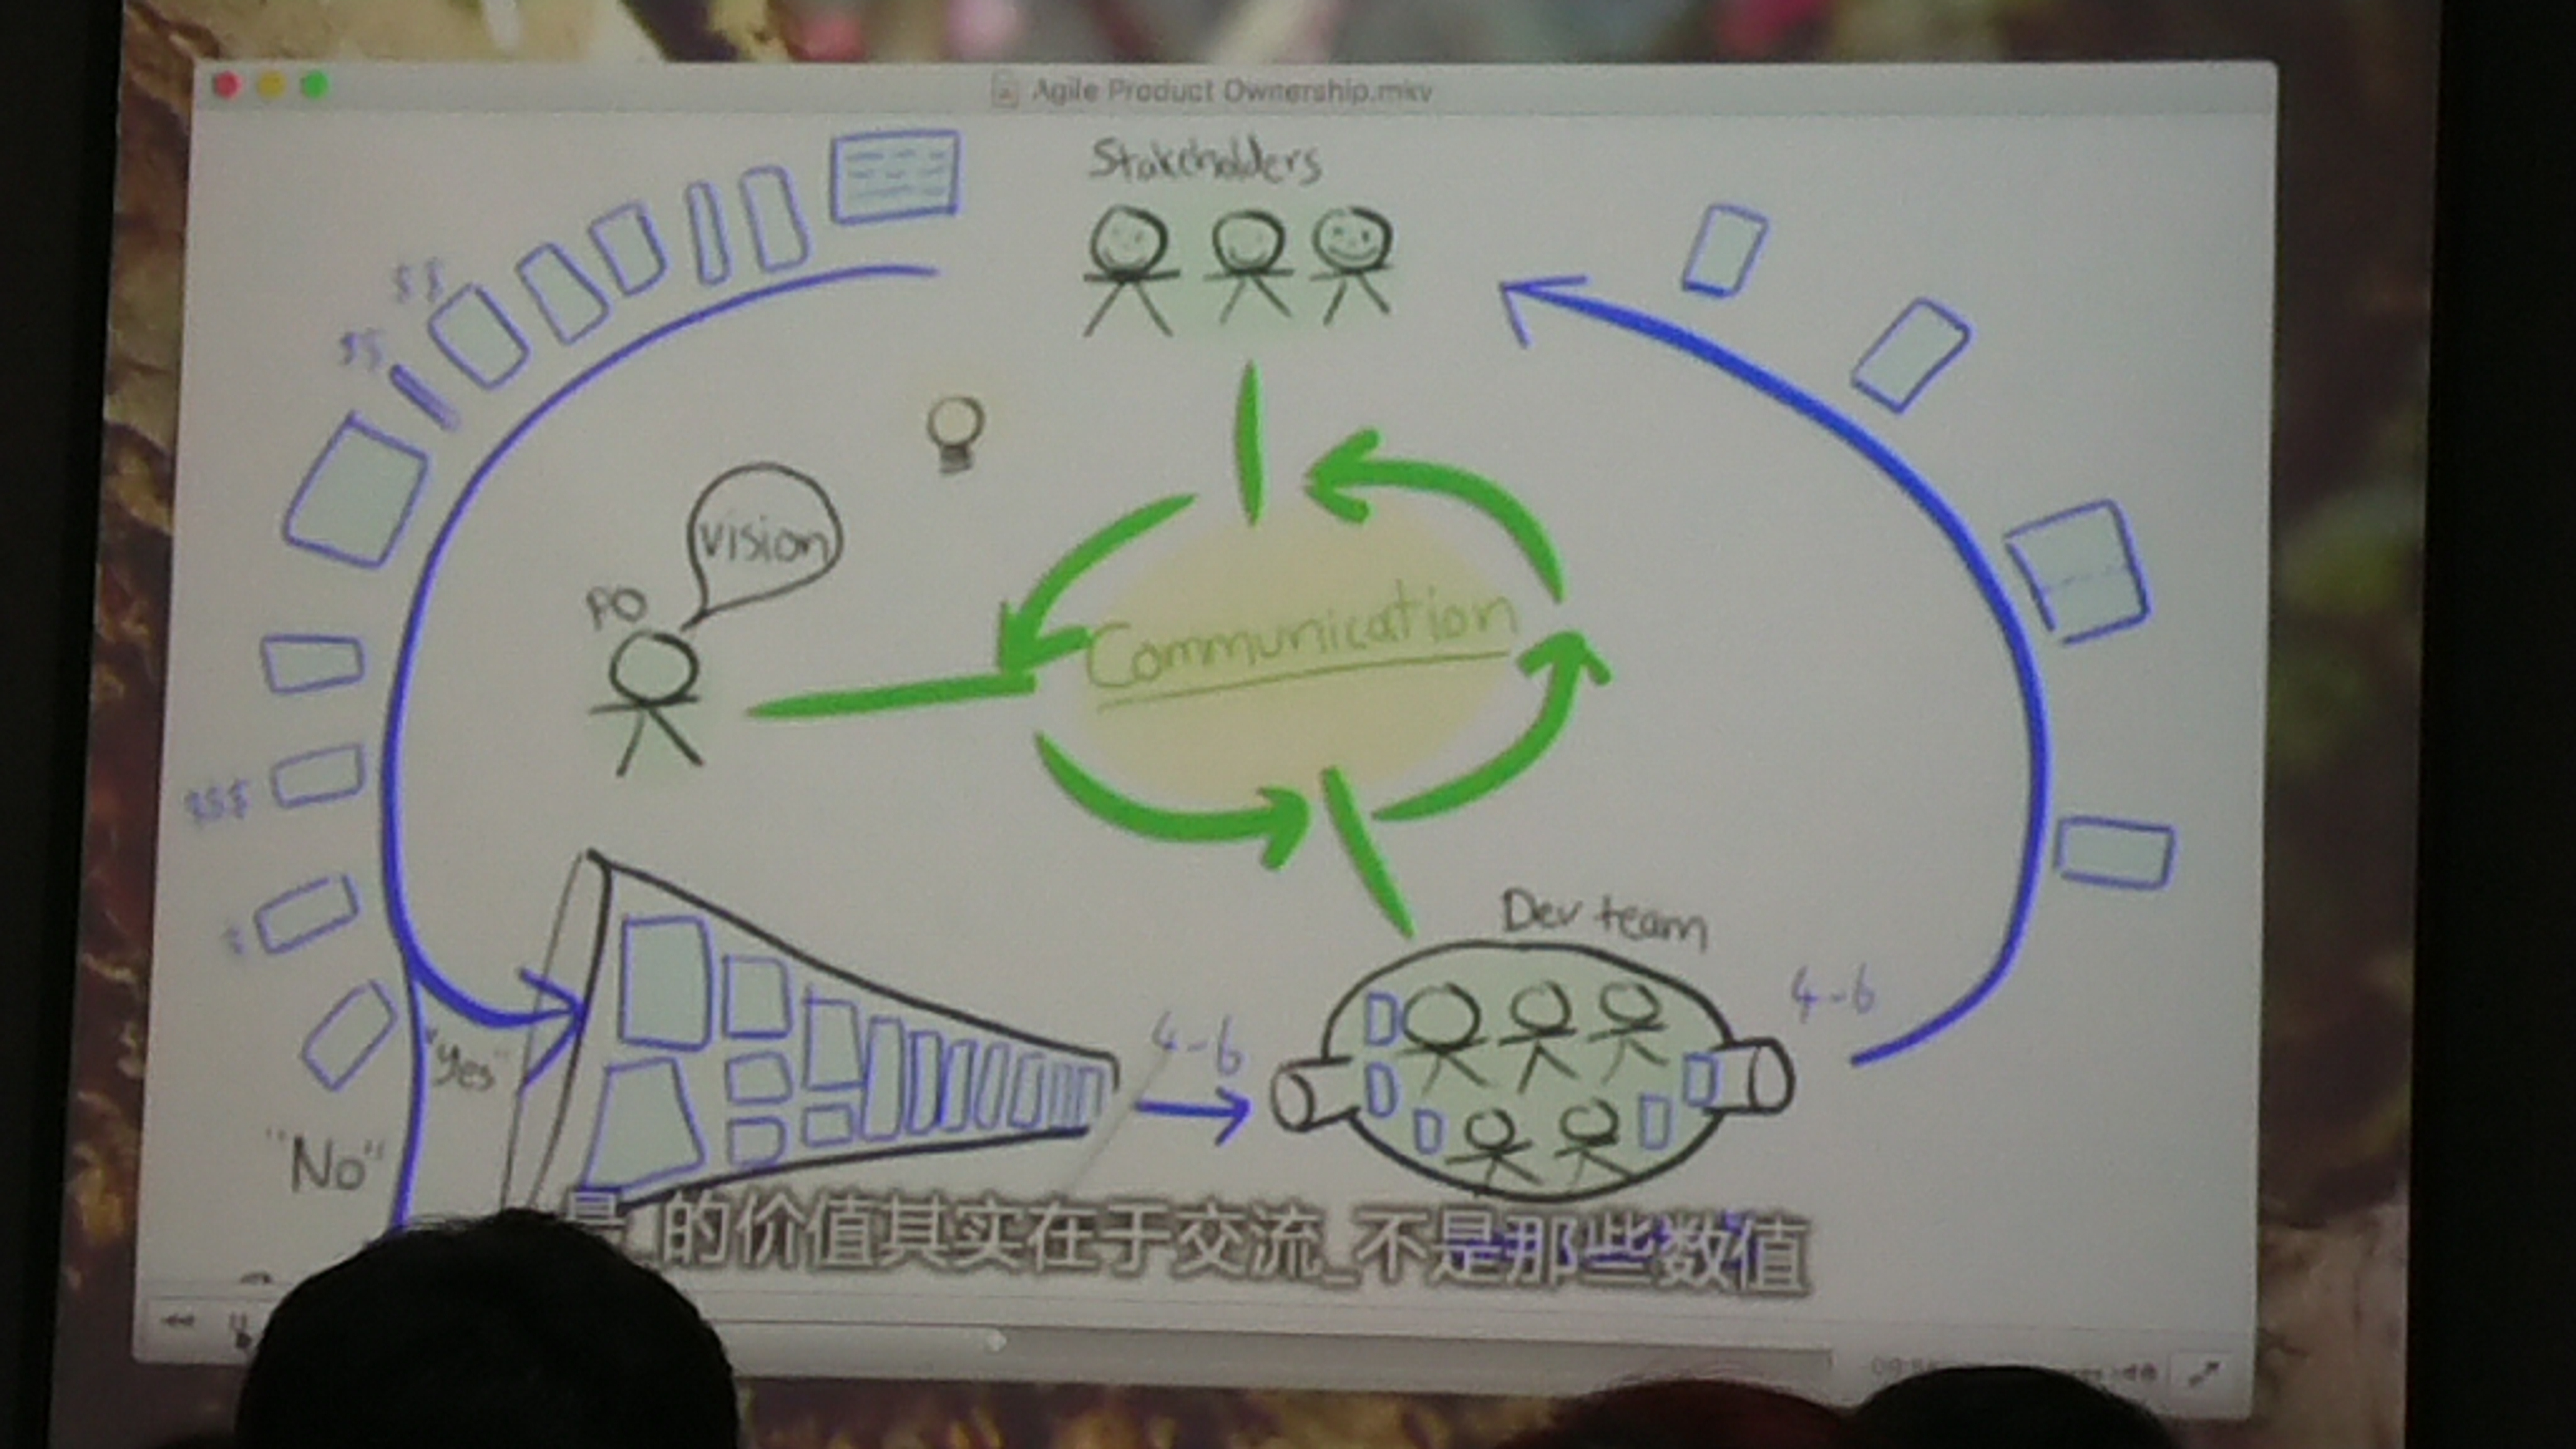 Agile Product Ownership.mkv
Stakeholders
$$
$$
vision
PO
Communication
$$$
$
Dev team
4-6
4-6
"Yes"
"No"
是_的价值其实在于交流_不是那些数值